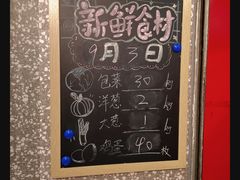 新鲜食材
9月3日
包菜 30 kg
洋葱 2 kg
大葱 1 kg
鸡蛋 40 枚